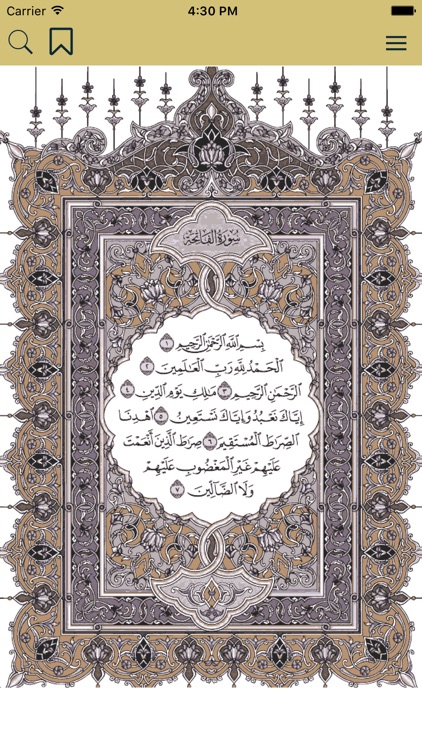 Carrier 4:30 PM
سُورَةُ الْفَاتِحَةِ
بِسْمِ اللَّهِ الرَّحْمَٰنِ الرَّحِيمِ ١
الْحَمْدُ لِلَّهِ رَبِّ الْعَالَمِينَ ٢
الرَّحْمَٰنِ الرَّحِيمِ ٣ مَالِكِ يَوْمِ الدِّينِ ٤
إِيَّاكَ نَعْبُدُ وَإِيَّاكَ نَسْتَعِينُ ٥ اهْدِنَا
الصِّرَاطَ الْمُسْتَقِيمَ ٦ صِرَاطَ الَّذِينَ أَنْعَمْتَ
عَلَيْهِمْ غَيْرِ الْمَغْضُوبِ عَلَيْهِمْ
وَلَا الضَّالِّينَ ٧